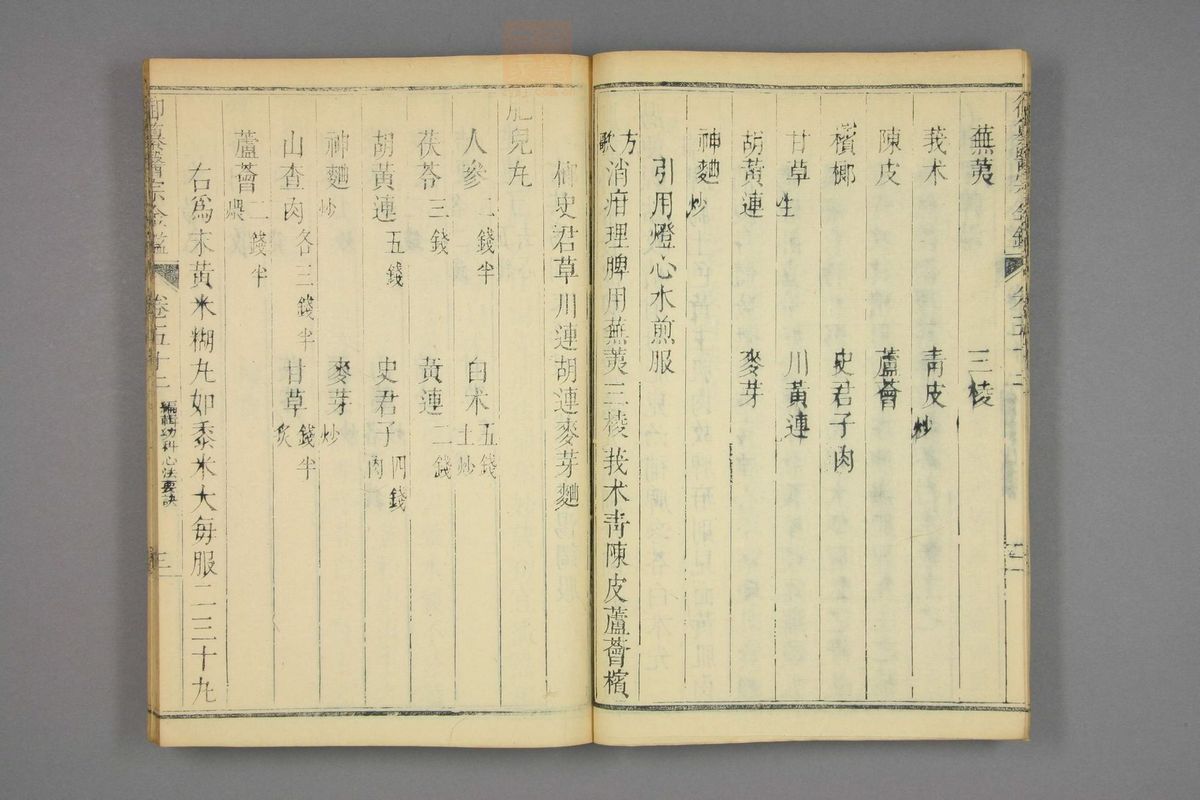 蕪荑　三稜
莪术　青皮炒
陳皮　蘆薈
檳榔　史君子肉
甘草生　川黃連
胡黃連　麥芽
神麯炒
引用燈心水煎服
方歌　消疳理脾用蕪荑三稜莪术青陳皮蘆薈檳
榔史君草川連胡連麥芽麯
肥兒丸
人參二錢半　白术五錢土炒
茯苓三錢　黃連二錢
胡黃連五錢　史君子肉四錢
神麯炒　麥芽炒
山查肉各三錢半　甘草炙錢半
蘆薈二錢半煨
右爲末黃米糊丸如黍米大每服二三十丸
御纂醫宗金鑑　卷五十二　編輯幼科心法要訣　三